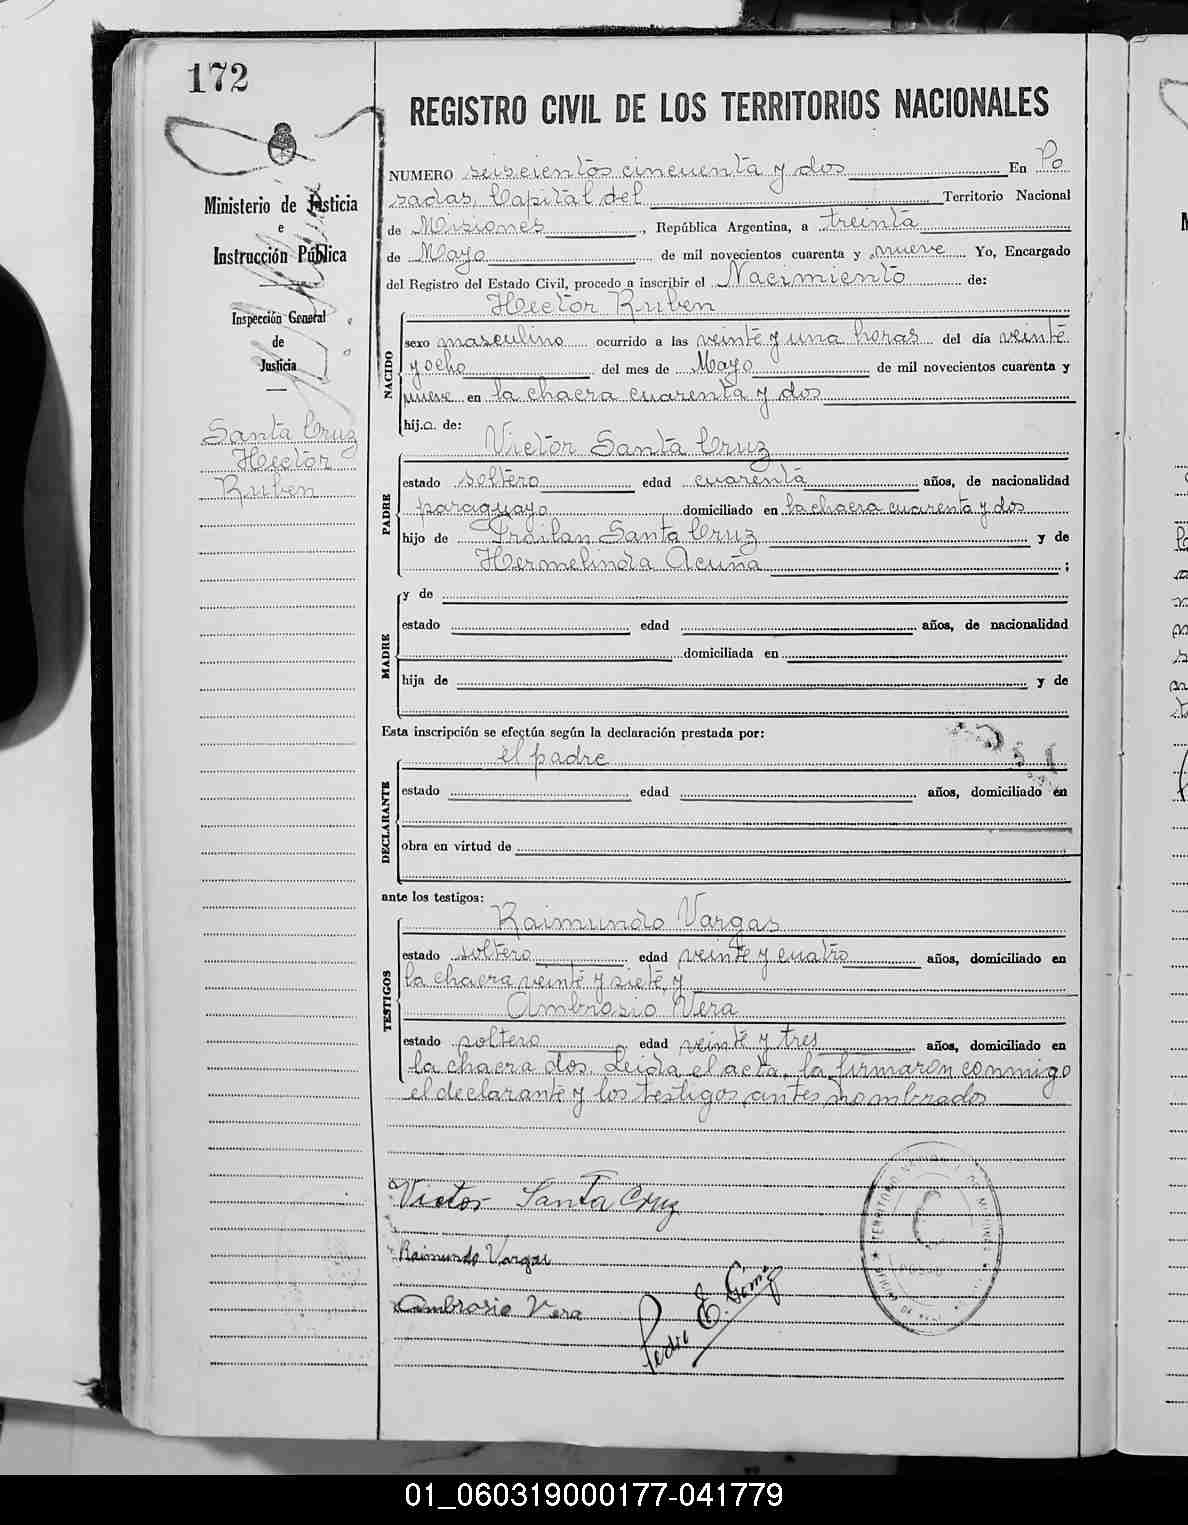 172
REGISTRO CIVIL DE LOS TERRITORIOS NACIONALES
Ministerio de Justicia
e
Instrucción Pública
Inspección General
de
Justicia
Santa Cruz
Hector
Ruben
NUMERO seiscientos cincuenta y dos En Po
sadas, Capital del Territorio Nacional
de Misiones, República Argentina, a treinta
de Mayo de mil novecientos cuarenta y nueve Yo, Encargado
del Registro del Estado Civil, procedo a inscribir el Nacimiento de:
NACIDO
Hector Ruben
sexo masculino ocurrido a las veinte y una horas del día veinte
y ocho del mes de Mayo de mil novecientos cuarenta y
nueve en la chacra cuarenta y dos
hij.o. de:
PADRE
Victor Santa Cruz
estado soltero edad cuarenta años, de nacionalidad
paraguayo domiciliado en la chacra cuarenta y dos
hijo de Froilan Santa Cruz y de
Hermelinda Acuña ;
MADRE
y de
estado edad años, de nacionalidad
domiciliada en
hija de y de
Esta inscripción se efectúa según la declaración prestada por:
DECLARANTE
el padre
estado edad años, domiciliado en
obra en virtud de
ante los testigos:
TESTIGOS
Raimundo Vargas
estado soltero edad veinte y cuatro años, domiciliado en
la chacra veinte y siete, y
Ambrosio Vera
estado soltero edad veinte y tres años, domiciliado en
la chacra dos. Leida el acta, la firmaron conmigo
el declarante y los testigos antes nombrados
Victor Santa Cruz
Raimundo Vargas
Ambrosio Vera
Pedro E.
TERRITORIO NACIONAL DE MISIONES
01_060319000177-041779